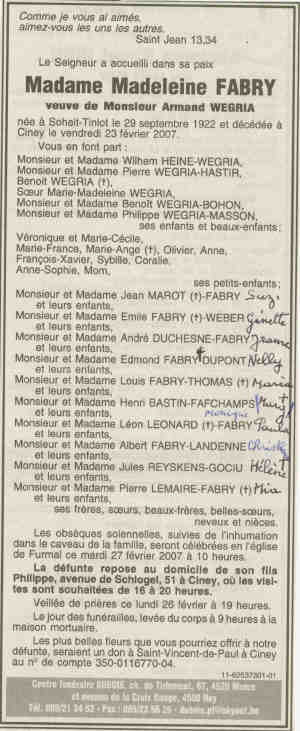 Comme je vous ai aimés,
aimez-vous les uns les autres.
Saint Jean 13,34
Le Seigneur a accueilli dans sa paix
Madame Madeleine FABRY
veuve de Monsieur Armand WEGRIA
née à Soheit-Tinlot le 29 septembre 1922 et décédée à
Ciney le vendredi 23 février 2007.
Vous en font part :
Monsieur et Madame Wilhem HEINE-WEGRIA,
Monsieur et Madame Pierre WEGRIA-HASTIR,
Benoît WEGRIA (†),
Sœur Marie-Madeleine WEGRIA,
Monsieur et Madame Benoît WEGRIA-BOHON,
Monsieur et Madame Philippe WEGRIA-MASSON,
ses enfants et beaux-enfants;
Véronique et Marie-Cécile,
Marie-France, Marie-Ange (†), Olivier, Anne,
François-Xavier, Sybille, Coralie,
Anne-Sophie, Mom,
ses petits-enfants;
Monsieur et Madame Jean MAROT (†)-FABRY Suzi
et leurs enfants,
Monsieur et Madame Emile FABRY (†)-WEBER Ginette
et leurs enfants,
Monsieur et Madame André DUCHESNE-FABRY Jeanne
et leurs enfants,
Monsieur et Madame Edmond FABRY-DUPONT Nelly
et leurs enfants,
Monsieur et Madame Louis FABRY-THOMAS (†) Maria
et leurs enfants,
Monsieur et Madame Henri BASTIN-FAFCHAMPS
et leurs enfants, Monique
Monsieur et Madame Léon LEONARD (†)-FABRY Paula
et leurs enfants,
Monsieur et Madame Albert FABRY-LANDENNE
et leurs enfants,
Monsieur et Madame Jules REYSKENS-GOCIU Hélène
et leurs enfants,
Monsieur et Madame Pierre LEMAIRE-FABRY (†) Mia
et leurs enfants,
ses frères, sœurs, beaux-frères, belles-sœurs,
neveux et nièces.
Les obsèques solennelles, suivies de l'inhumation
dans le caveau de la famille, seront célébrées en l'église
de Furmal ce mardi 27 février 2007 à 10 heures.
La défunte repose au domicile de son fils
Philippe, avenue de Schlogel, 51 à Ciney, où les visi-
tes sont souhaitées de 16 à 20 heures.
Veillée de prières ce lundi 26 février à 19 heures.
Le jour des funérailles, levée du corps à 9 heures à la
maison mortuaire.
Les plus belles fleurs que vous pourriez offrir à notre
défunte, seraient un don à Saint-Vincent-de-Paul à Ciney
au n° de compte 350-0116770-04.
11-62537301-01
Centre funéraire DUBOIS, ch. de
et avenue de la Croix Rouge, 4500 Huy